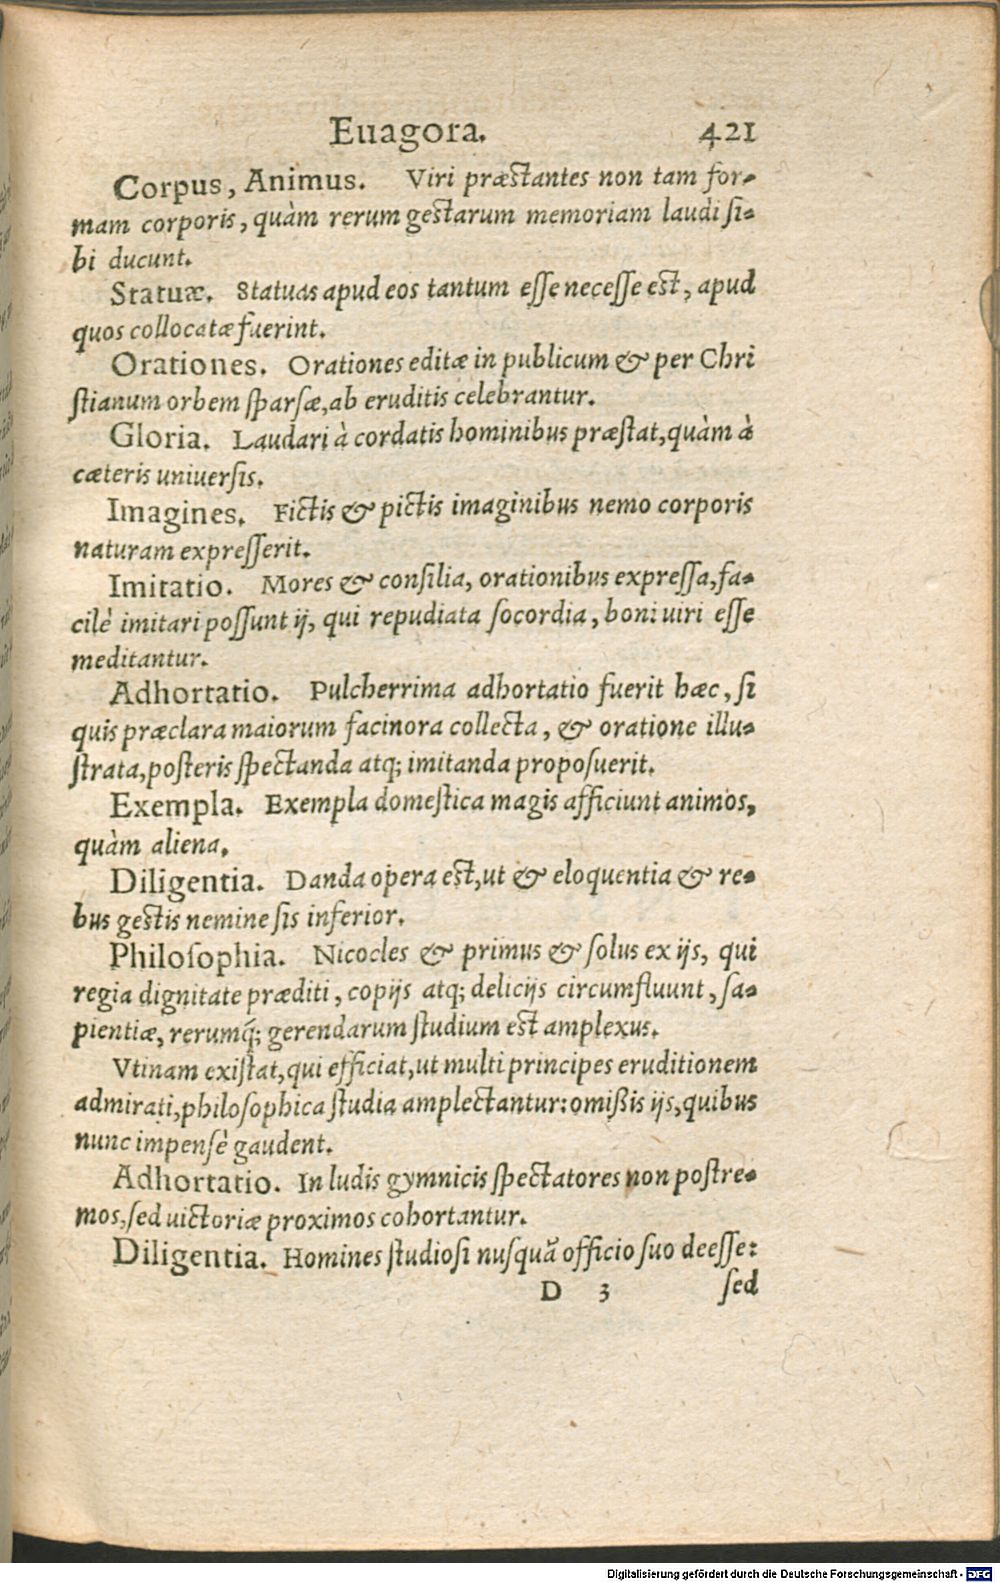 Euagora. 421
Corpus, Animus. Viri præstantes non tam for-
mam corporis, quàm rerum gestarum memoriam laudi si-
bi ducunt.
Statuæ. Statuas apud eos tantum esse necesse est, apud
quos collocatæ fuerint.
Orationes. Orationes editæ in publicum & per Chri
stianum orbem sparsæ, ab eruditis celebrantur.
Gloria. Laudari à cordatis hominibus præstat, quàm à
cæteris uniuersis.
Imagines. Fictis & pictis imaginibus nemo corporis
naturam expresserit.
Imitatio. Mores & consilia, orationibus expressa, fa-
cilè imitari possunt ij, qui repudiata socordia, boni uiri esse
meditantur.
Adhortatio. Pulcherrima adhortatio fuerit hæc, si
quis præclara maiorum facinora collecta, & oratione illu-
strata, posteris spectanda atq; imitanda proposuerit.
Exempla. Exempla domestica magis afficiunt animos,
quàm aliena.
Diligentia. Danda opera est, ut & eloquentia & re-
bus gestis nemine sis inferior.
Philosophia. Nicocles & primus & solus ex ijs, qui
regia dignitate præditi, copijs atq; delicijs circumfluunt, sa-
pientiæ, rerumq́; gerendarum studium est amplexus.
Vtinam existat, qui efficiat, ut multi principes eruditionem
admirati, philosophica studia amplectantur: omißis ijs, quibus
nunc impensè gaudent.
Adhortatio. In ludis gymnicis spectatores non postre-
mos, sed uictoriæ proximos cohortantur.
Diligentia. Homines studiosi nusquã officio suo deesse:
D 3 sed
Digitalisierung gefördert durch die Deutsche Forschungsgemeinschaft - DFG